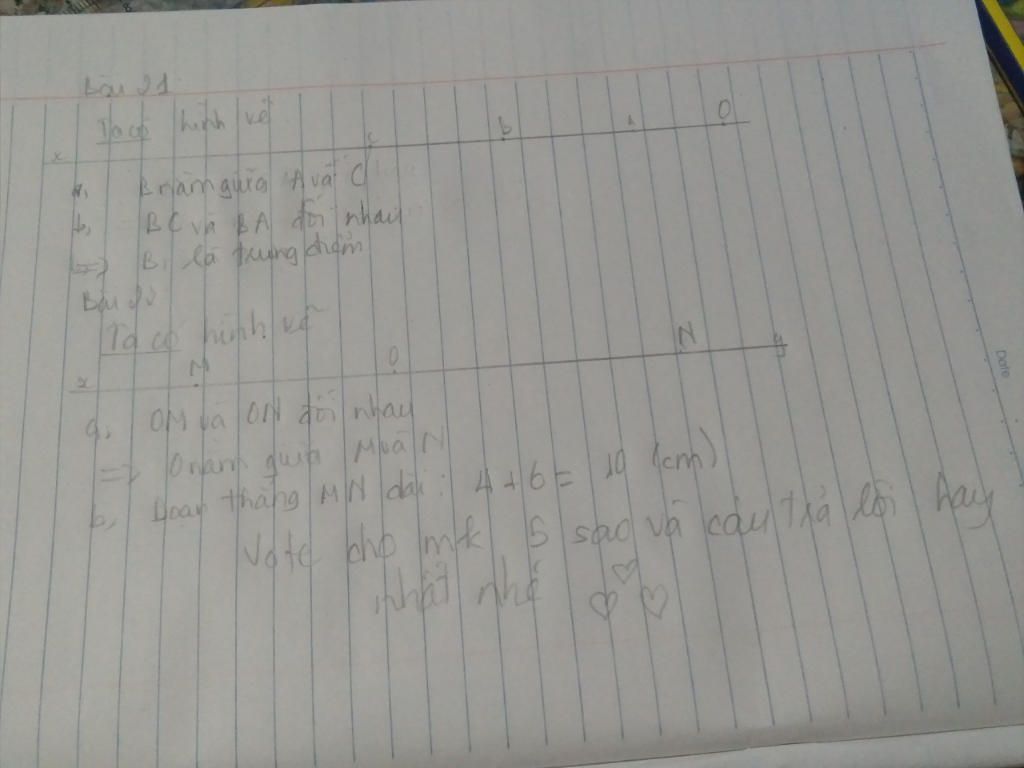 Bài 21
Ta có hình vẽ
x c b A O
a, B nằm giữa A và C
b, BC và BA đối nhau
=> B là trung điểm
Bài
Ta có hình vẽ
x M O N y
a, OM và ON đối nhau
=> O nằm giữa M và N
b, Đoạn thẳng MN dài: 4 + 6 = 10 (cm)
Vote cho mk 5 sao và câu trả lời hay
nhất nhé
Date